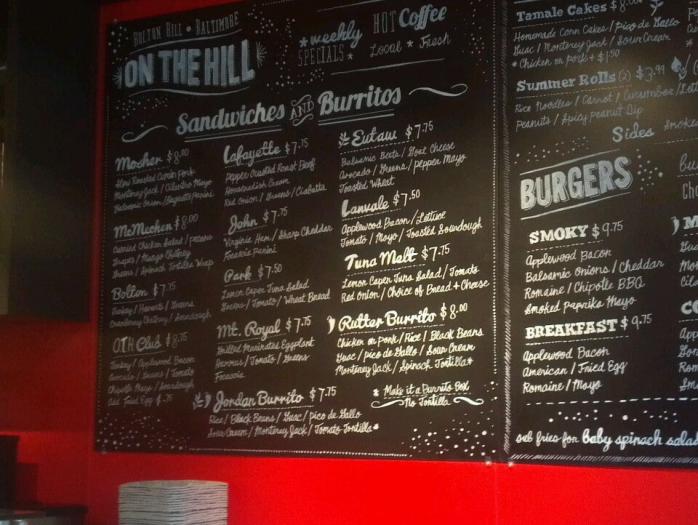 BOLTON HILL • BALTIMORE
ON THE HILL
*weekly SPECIALS*
HOT Coffee
Local * Fresh
Sandwiches AND Burritos
Mosher $8.00
Slow Roasted Cuban Pork
Monterey Jack / Cilantro Mayo
Balsamic Onion /
McMechen $8.00
Curried Chicken Salad / Pecans
Grapes / Mango Chutney
Greens / Spinach Tortilla Wrap
Bolton $7.75
Turkey / Havarti / Greens
Cranberry Chutney / Sourdough
OTH Club $8.75
Turkey / Applewood Bacon
Greens / Tomato
Chipotle Mayo / Sourdough
Add Fried Egg $.75
Lafayette $7.75
Pepper Crusted Roast Beef
Horseradish Cream
Red Onion / Greens / Ciabatta
John $7.75
Virginia Ham / Sharp Cheddar
Focaccia Panini
Park $7.50
Lemon Caper Tuna Salad
Greens / Tomato / Wheat Bread
Mt. Royal $7.75
Grilled Marinated Eggplant
Hummus / Tomato / Greens
Focaccia
Jordan Burrito $7.75
Rice / Black Beans / Guac / pico de Gallo
Sour Cream / Monterey Jack / Tomato Tortilla*
Eutaw $7.75
Balsamic Beets / Goat Cheese
Avocado / Greens / pepper Mayo
Toasted Wheat
Lanvale $7.50
Applewood Bacon / Lettuce
Tomato / Mayo / Toasted Sourdough
Tuna Melt $7.75
Lemon Caper Tuna Salad / Tomato
Red Onion / Choice of Bread + Cheese
Rutter Burrito $8.00
Chicken or pork / Rice / Black Beans
Guac / pico de Gallo / Sour Cream
Monterey Jack / Spinach Tortilla*
* Make it a Burrito Box
No Tortilla
Tamale Cakes
Homemade Corn Cakes / Pico de Gallo
Guac / Monterey Jack / Sour Cream
* Chicken or pork + $1.50
Summer Rolls (2) $3.99
Rice Noodles / Carrot / Cucumber
Peanuts / Spicy Peanut Dip
Sides
BURGERS
SMOKY $9.75
Applewood Bacon
Balsamic Onions / Cheddar
Romaine / Chipotle BBQ
Smoked Paprika Mayo
BREAKFAST $9.75
Applewood Bacon
American / Fried Egg
Romaine / Mayo
sub fries for baby spinach salad